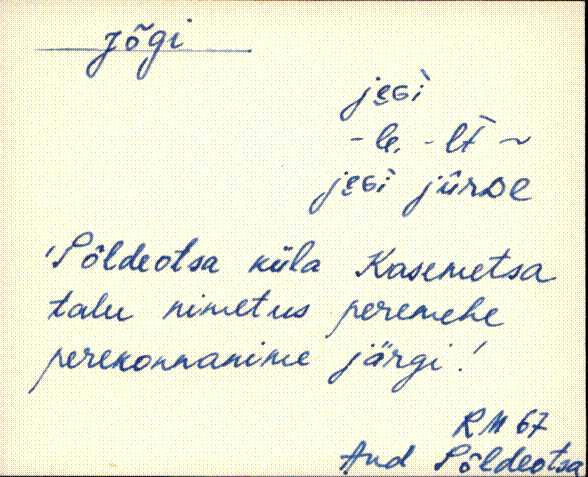 Jõgi
jęGì
- le, - lt ~
jęGì jürDe
'Põldeotsa küla Kasemetsa
talu nimetus peremehe
perekonnanime järgi!
RM 67
And Põldeotsa